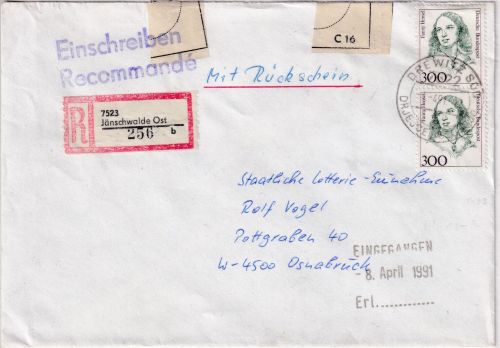 Einschreiben
Recommandé
C 16
Mit Rückschein
Fanny Hensel
Deutsche Bundespost
300
DREWITZ
300
Deutsche Bundespost
R
7523
Jänschwalde Ost
256 b
Staatliche Lotterie-Einnahme
Rolf Vogel
Pottgraben 40
W-4500 Osnabrück
EINGEGANGEN
- 8. April 1991
Erl.............